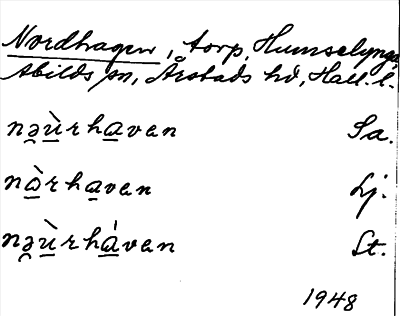 Nordhagen, torp, Humselynga
Abilds sn, Årstads hd, Hall. l.
nə̯ù̱rha̱ven Sa.
nò̱rha̱ven Lj.
nə̯ù̱rhá̱ven St.
1948